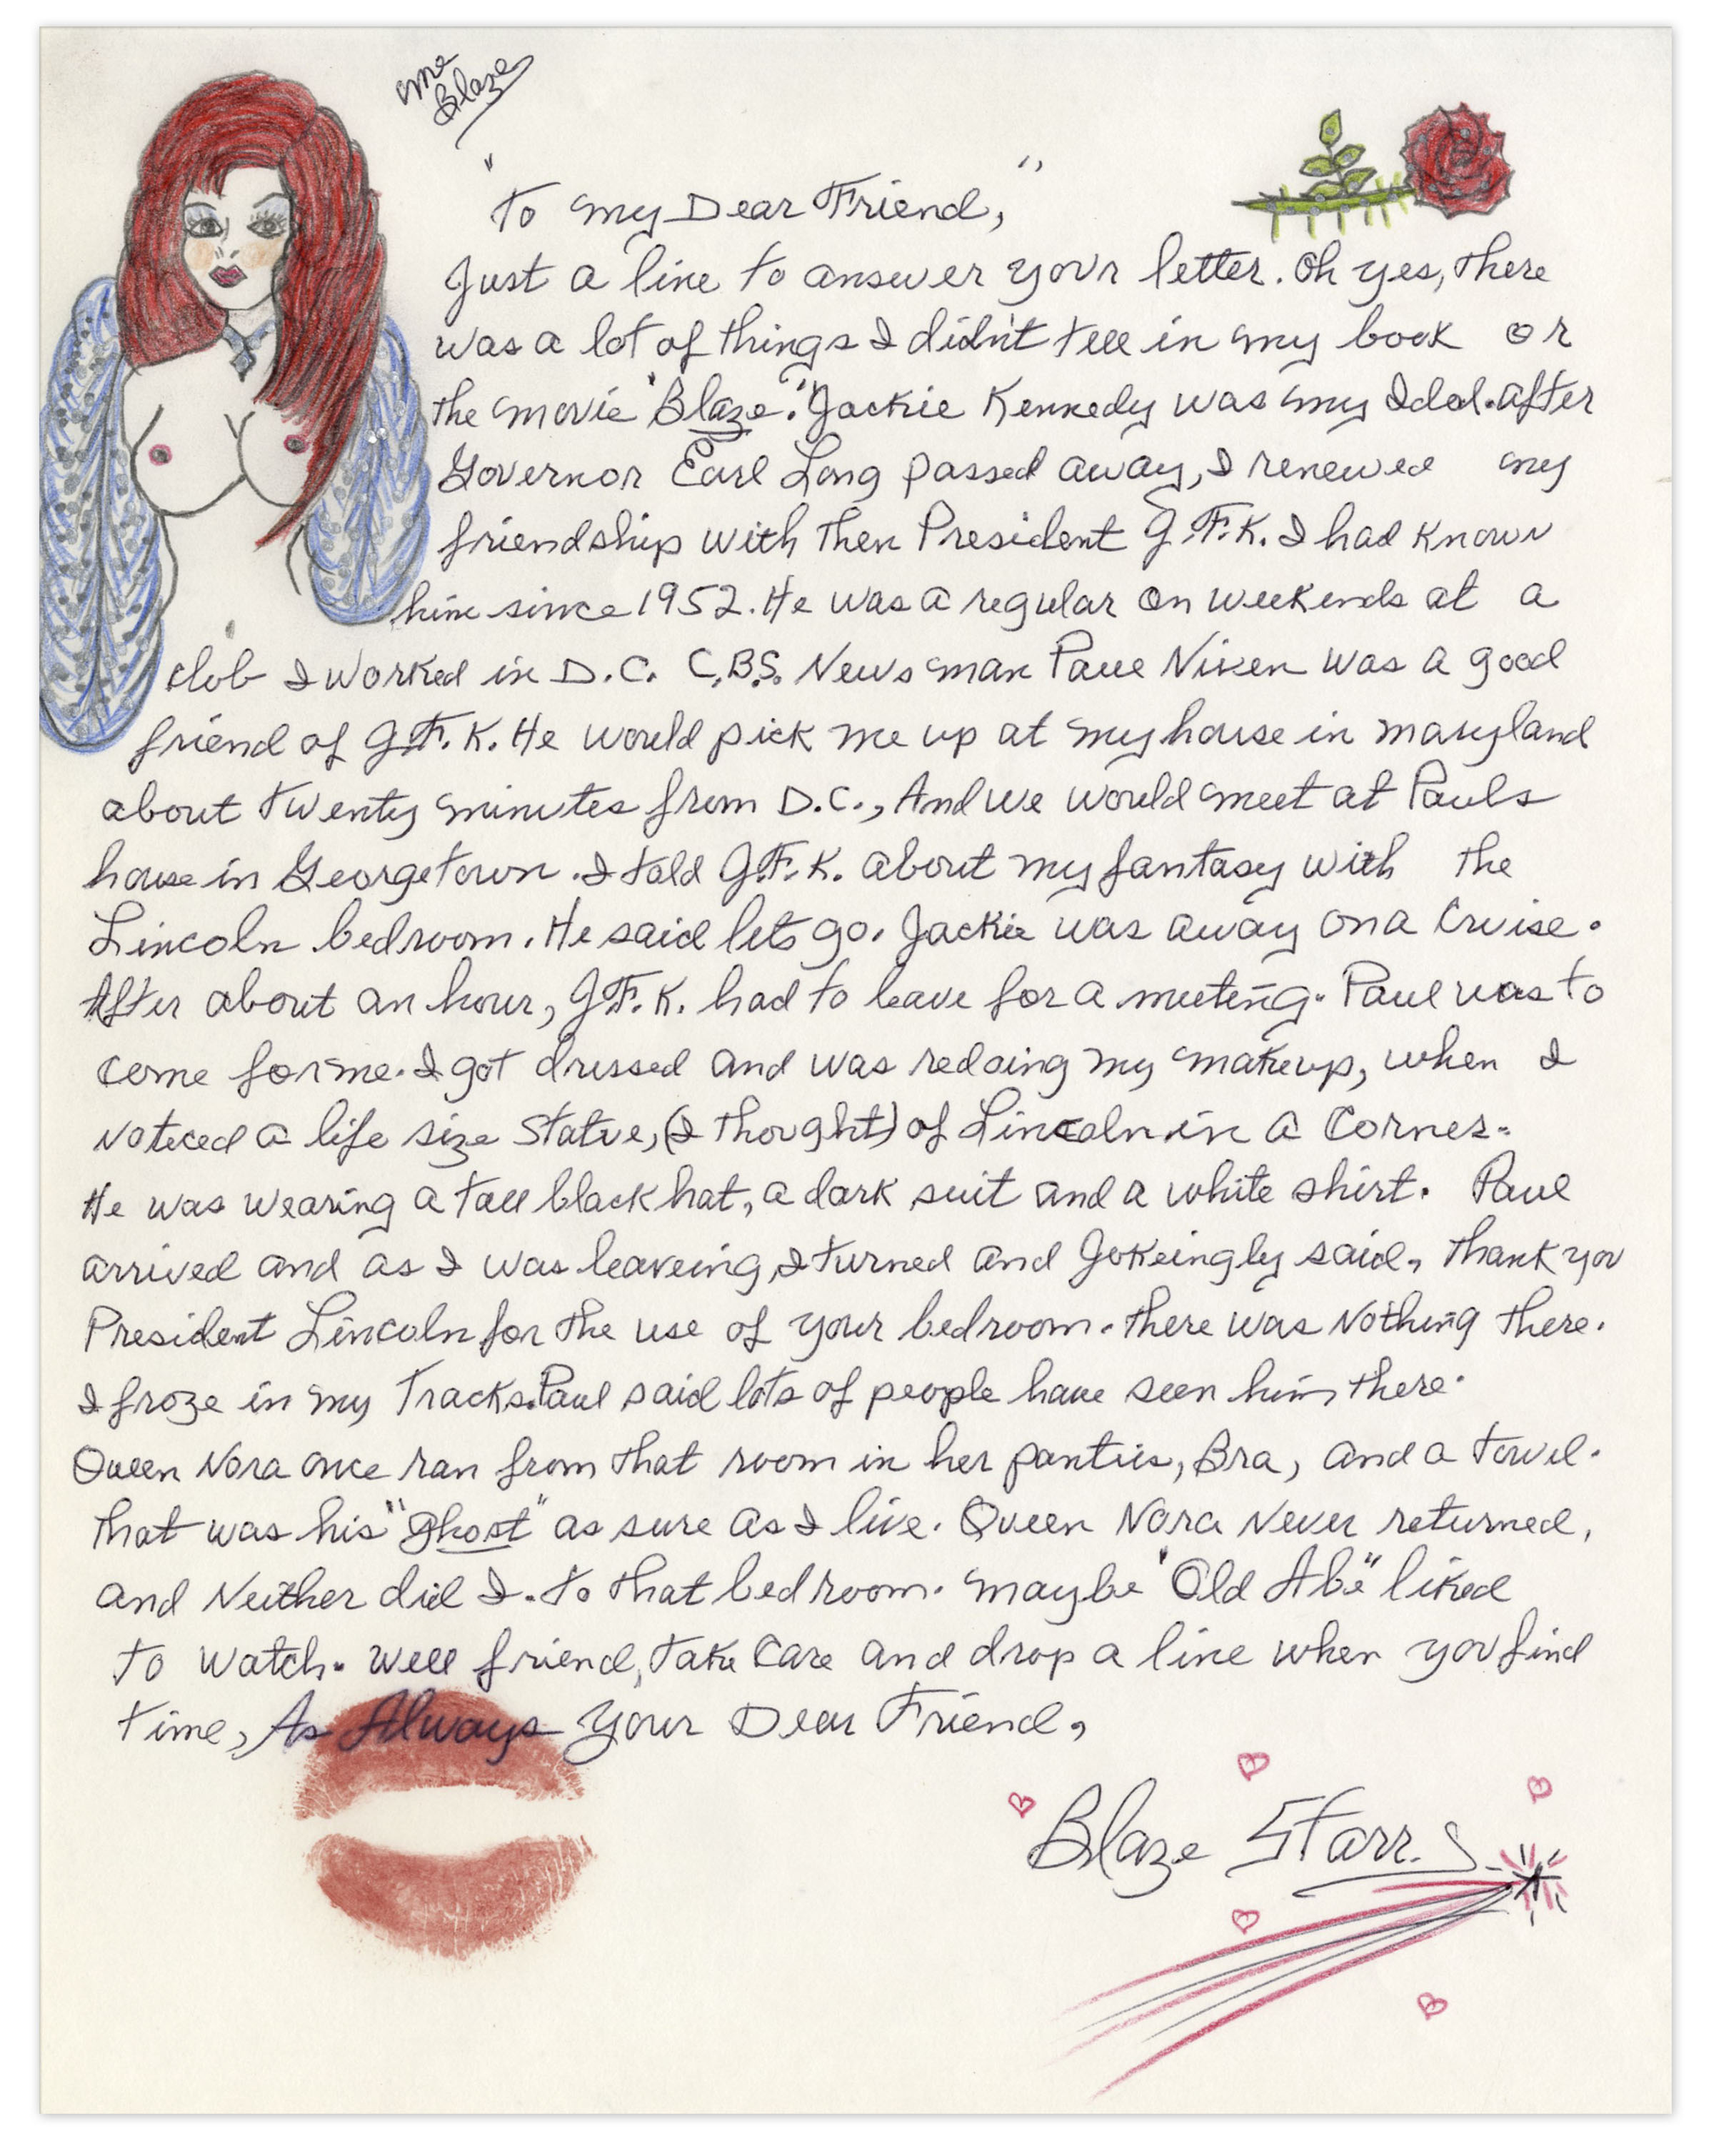 me
Blaze
"To my Dear Friend,"
Just a line to answer your letter. Oh yes, there
was a lot of things I didn't tell in my book or
the movie "Blaze." Jackie Kennedy was my Idol. after
Governor Earl Long passed away, I renewed my
friendship with then President J.F.K. I had known
him since 1952. He was a regular on weekends at a
club I worked in D.C. C.B.S. News man Paul Niven was a good
friend of J.F.K. He would pick me up at my house in maryland
about twenty minutes from D.C., And we would meet at Pauls
house in Georgetown. I told J.F.K. about my fantasy with the
Lincoln bedroom. He said lets go. Jackie was away on a Cruise.
After about an hour, J.F.K. had to leave for a meeting. Paul was to
come for me. I got dressed and was redoing my makeup, when I
Noticed a life size Statue, (I thought) of Lincoln in a Corner.
He was wearing a tall black hat, a dark suit and a white shirt. Paul
arrived and as I was leaveing, I turned and Jokeingly said, thank you
President Lincoln for the use of your bedroom. there was Nothing there.
I froze in my Tracks. Paul said lots of people have seen him there.
Queen Nora once ran from that room in her panties, Bra, and a towel.
that was his "Ghost" as sure as I live. Queen Nora Never returned,
and Neither did I. to that bedroom. maybe "Old Abe" liked
to watch. Well friend, take Care and drop a line when you find
time, As Always Your Dear Friend,
Blaze Starr.